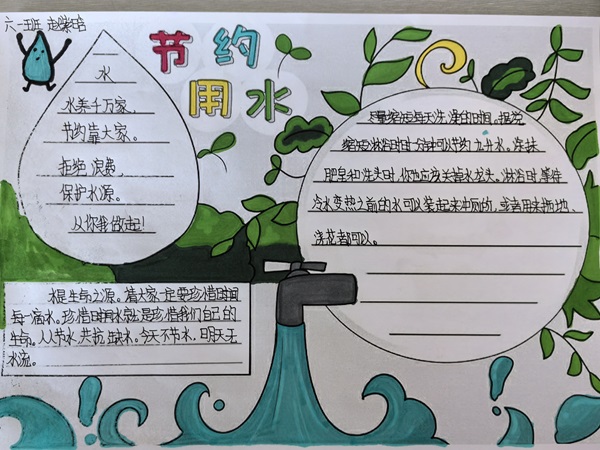 六一班
节约
用水
水
水美千万家,
节约靠大家。
拒绝浪费,
保护水源。
从你我做起!
尽量缩短每天洗澡的时间,据说
缩短淋浴时时1分钟可以节约九升水。涂抹
肥皂和洗头时,你也应关掉水龙头。淋浴时等待
冷水变热之前的水可以装起来冲厕所,或者用来拖地、
浇花都可以。
水是生命之源。请大家一定要珍惜时间
每一滴水。珍惜时用水就是珍惜我们自己的
生命。人人节水,共抗缺水。今天不节水,明天无
水流。